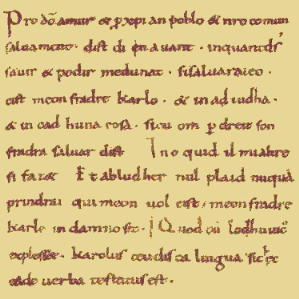 Pro dō amur & pxpian poblo & nro comun
saluament. dist di en auant. inquantds
sauir & podir medunat. sisaluaraieo.
cist meon fradre karlo. & in ad iudha.
& in cad huna cosa. sicu om p dreit son
fradra saluar dist. Ino quid il mialtre
si faz&. Et abludher nul plaid nuquā
prindrai qui meon uol cist meon fradre
karle in damno sit. Quod cū lodhuuic
explesset. karolus teudisca lingua sic hec
eade uerba testatus est.